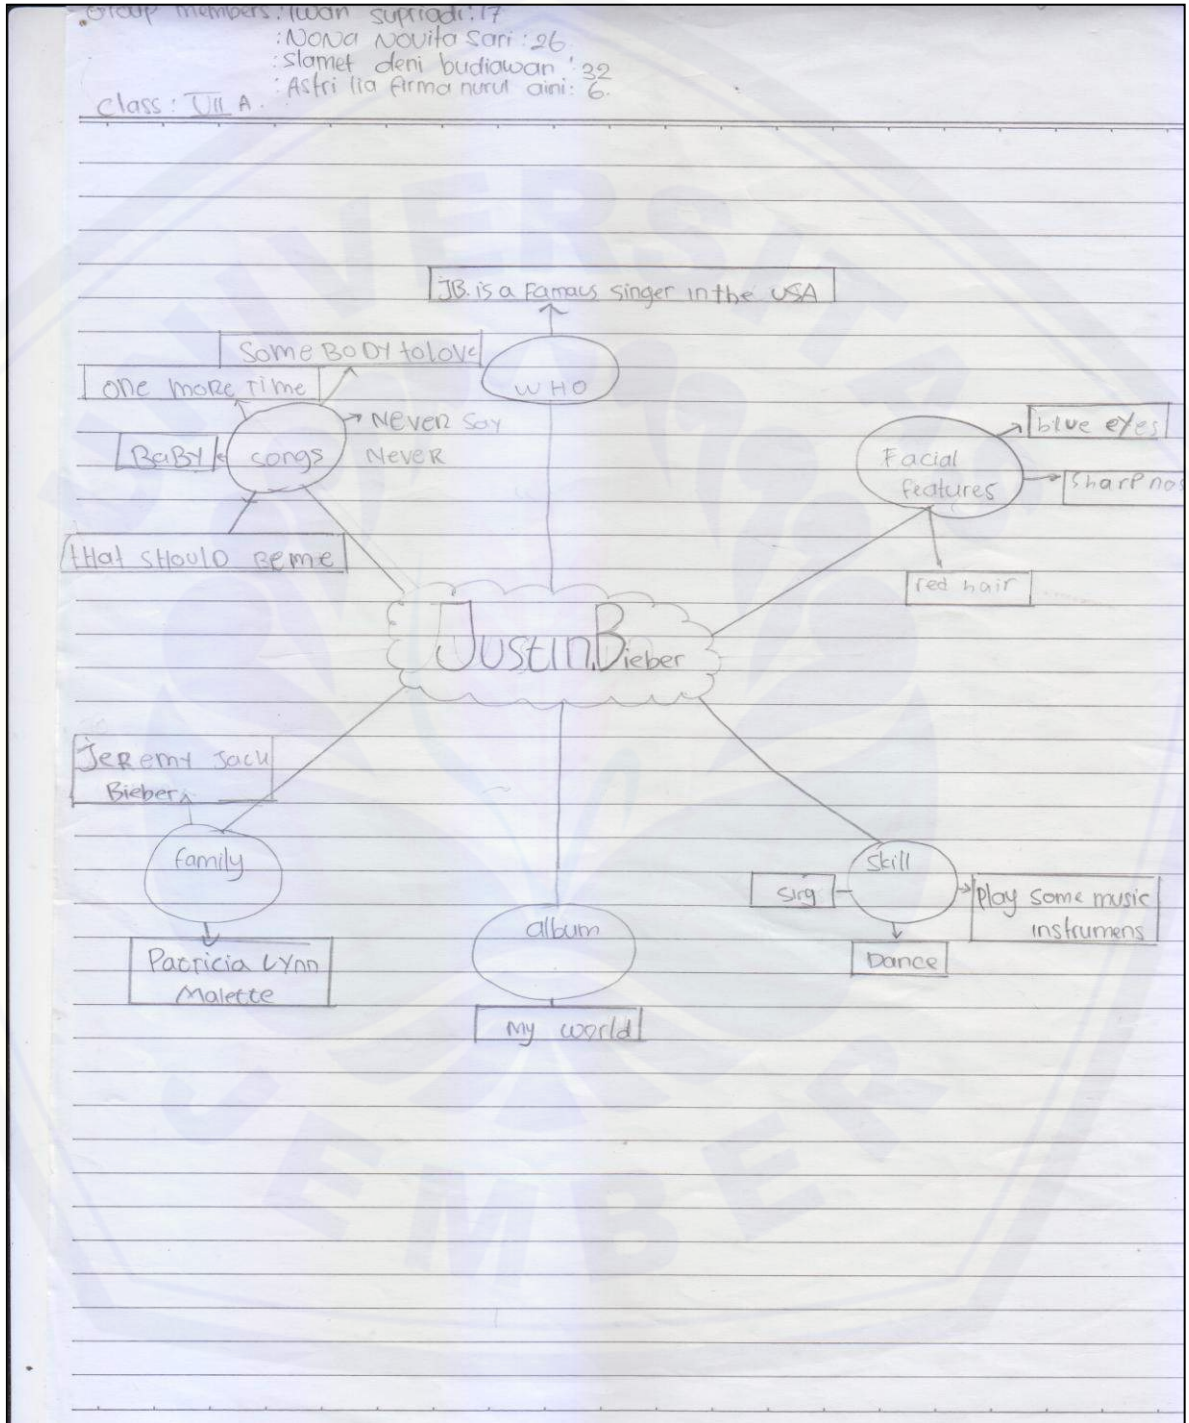 Group members: Iwan supriadi: 17
: NONA NOVita Sari : 26
: Slamet deni budiawan : 32
: Astri lia firma nurul aini : 6.
Class : VII A.
JB. is a Famaus singer in the USA
WHO
Some BODY to love
one more Time
songs
Never Say
Never
BaBY
tHat SHOULD BE me
Facial
features
blue eyes
Sharp nos
red hair
Justin.Bieber
JeRemy Jack
Bieber
family
Patricia LYnn
Malette
album
My world
Skill
sing
Play some music
instrumens
Dance
UNIVERSITAS
JEMBER